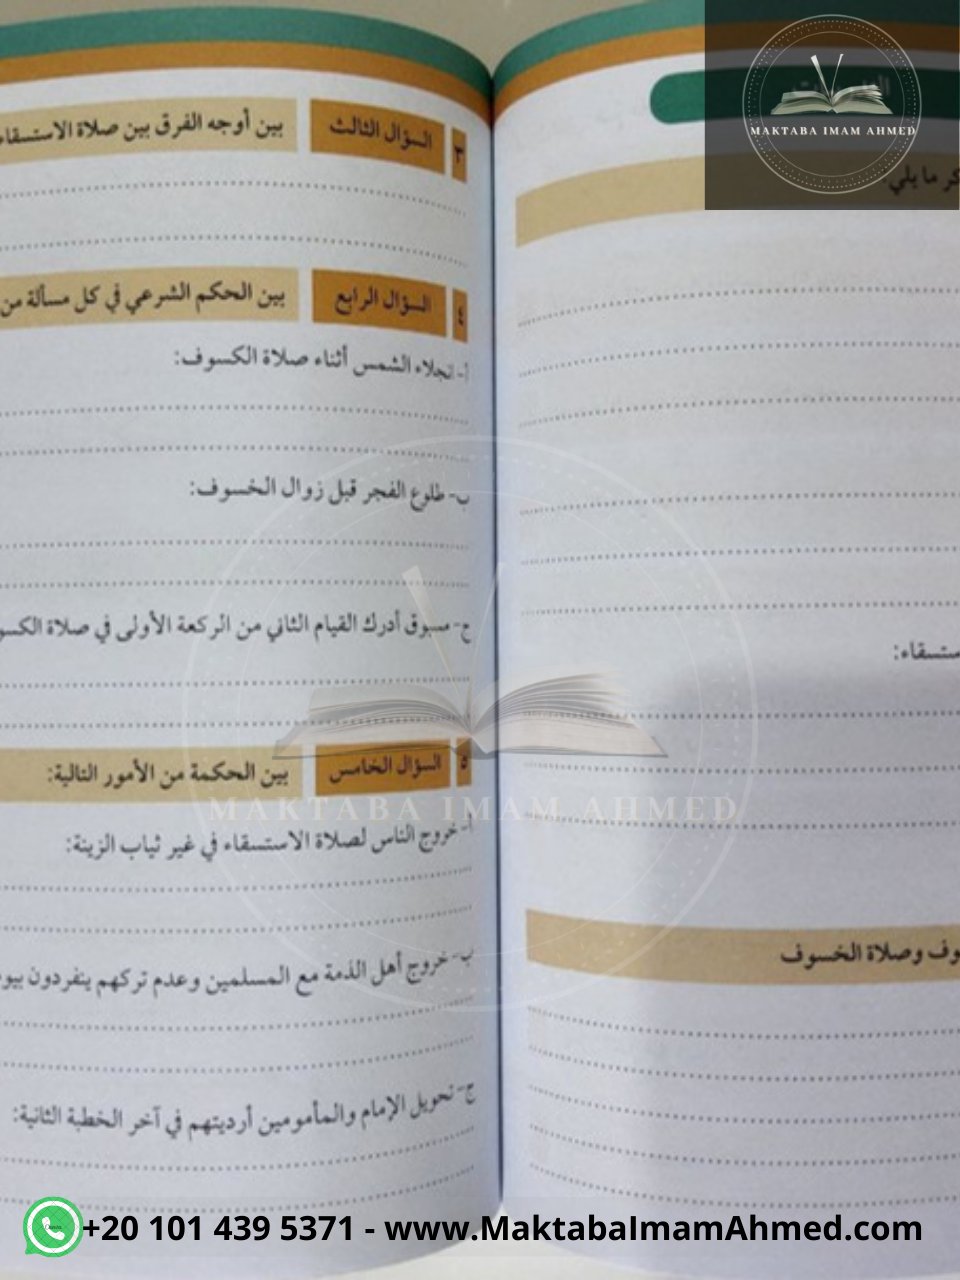 MAKTABA IMAM AHMED
ما يلي
ستسقاء:
وف وصلاة الخسوف
٣ السؤال الثالث بين أوجه الفرق بين صلاة الاستسقاء
٤ السؤال الرابع بين الحكم الشرعي في كل مسألة من
أ- انجلاء الشمس أثناء صلاة الكسوف:
ب- طلوع الفجر قبل زوال الخسوف:
ج- مسبوق أدرك القيام الثاني من الركعة الأولى في صلاة الكسو
٥ السؤال الخامس بين الحكمة من الأمور التالية:
أ- خروج الناس لصلاة الاستسقاء في غير ثياب الزينة:
ب- خروج أهل الذمة مع المسلمين وعدم تركهم ينفردون بيو
ج- تحويل الإمام والمأمومين أرديتهم في آخر الخطبة الثانية:
MAKTABA IMAM AHMED
+20 101 439 5371 - www.MaktabaImamAhmed.com